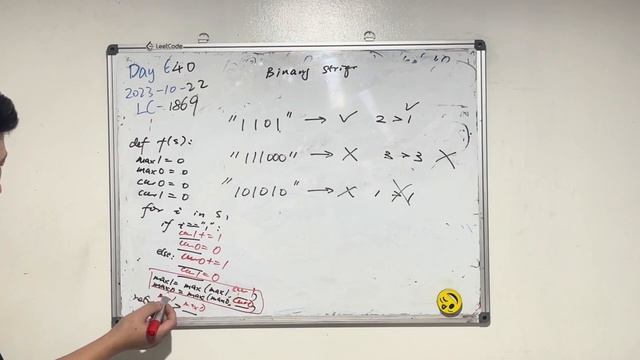 LeetCode
Day 640
2023-10-22
LC-1869
Binary strings
"1101" → ✓ 2>1 ✓
"111000" → X 3>3 X
"101010" → X 1>1 X
def f(s):
max1=0
max0=0
cur0=0
cur1=0
for i in s:
if i=="1":
cur1+=1
cur0=0
else:
cur0+=1
cur1=0
max1=max(max1, cur1)
max0=max(max0, cur0)
> max0